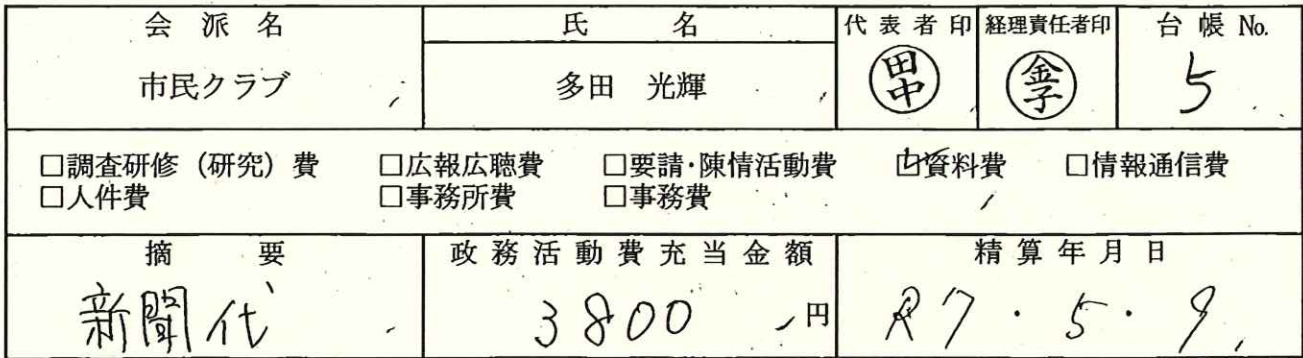 会派名 氏名 代表者印 経理責任者印 台帳No.
市民クラブ 多田 光輝 田中 金子 5
□調査研修(研究)費 □広報広聴費 □要請・陳情活動費 ☑資料費 □情報通信費
□人件費 □事務所費 □事務費
摘要 政務活動費充当金額 精算年月日
新聞代 3800円 R7・5・9